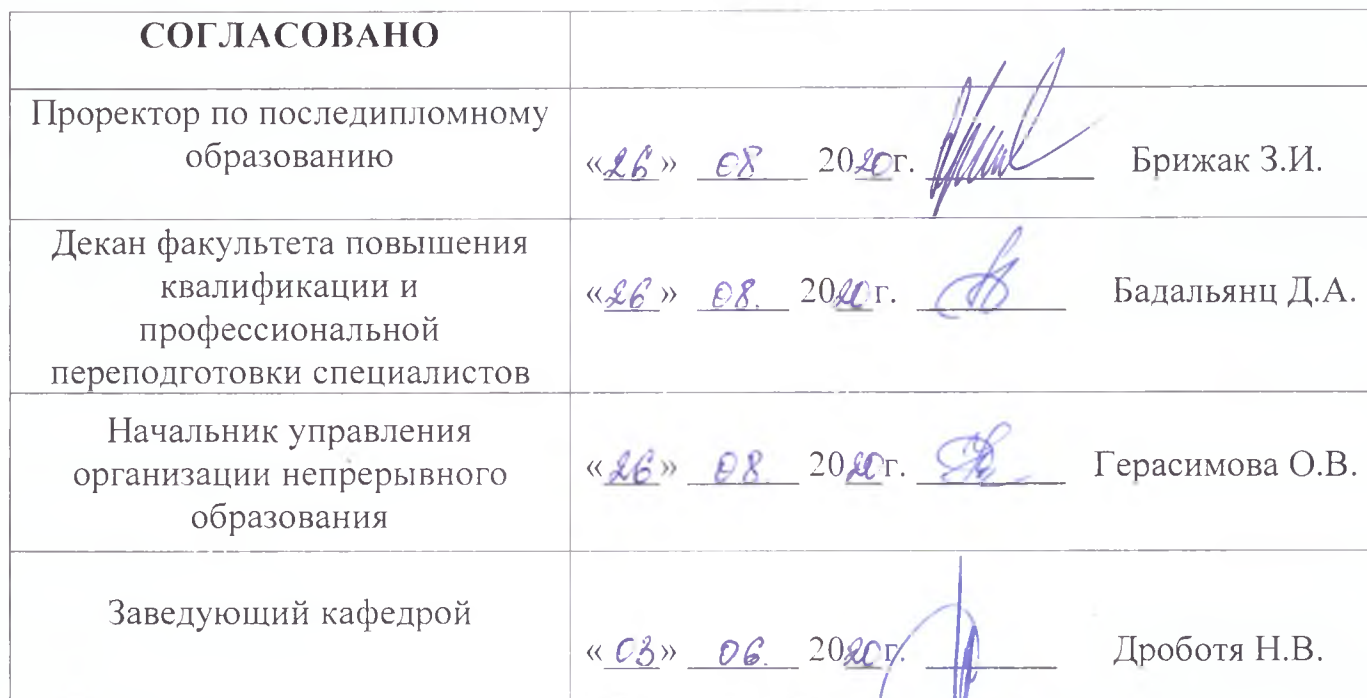 СОГЛАСОВАНО
Проректор по последипломному
образованию
«26» 08 2020г. Брижак З.И.
Декан факультета повышения
квалификации и
профессиональной
переподготовки специалистов
«26» 08. 2020г. Бадальянц Д.А.
Начальник управления
организации непрерывного
образования
«26» 08. 2020г. Герасимова О.В.
Заведующий кафедрой
«03» 06. 2020г. Дроботя Н.В.